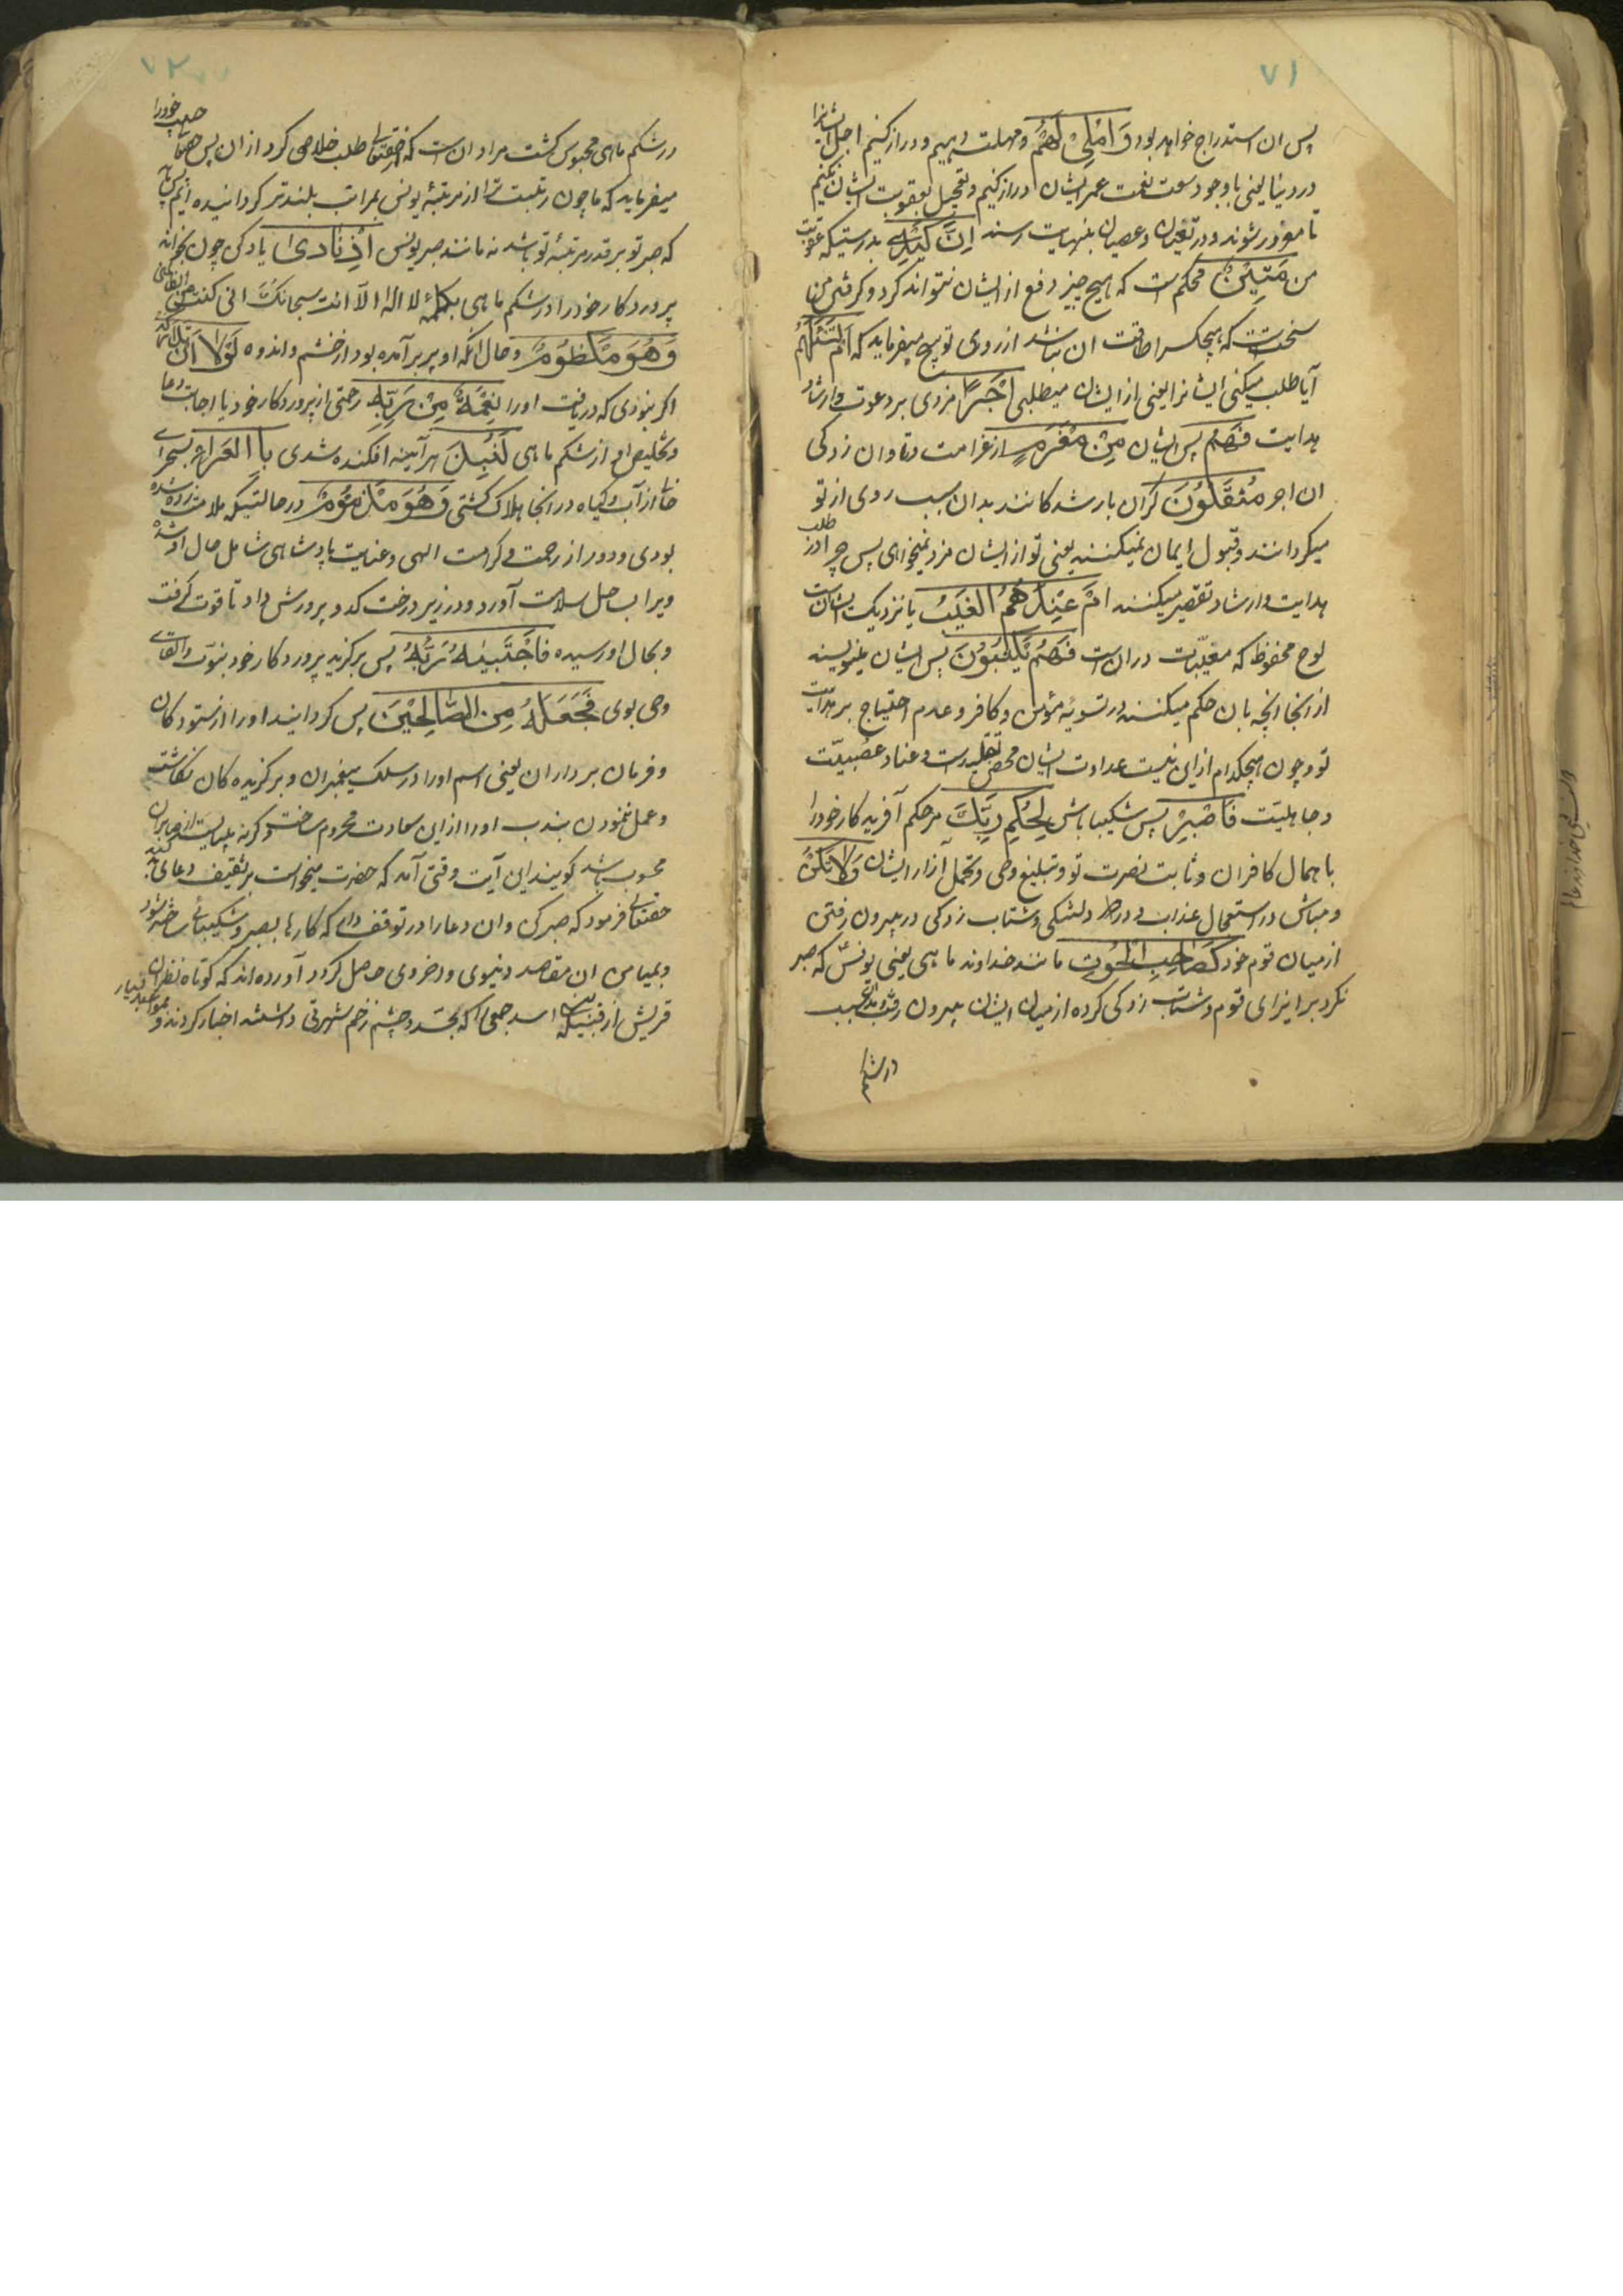 ۷۱
پس ان استدراج خواهد بود وَ اُمْلِیْ لَهُمْ و مهلت دهیم و دراز کنیم اجل ایشانرا
در دنیا یعنی با وجود سعت نعمت عمر ایشان دراز کنیم و تعجیل بعقوبت ایشان نکنیم
تا مغرور شوند و در تغیان و عصیان بنهایت رسند اِنَّ کَیْدِیْ بدرستیکه عقوبت
من مَتِیْنٌ محکم است که هیچ چیز دفع از ایشان نتواند کرد و کرفتن من
سخت است که هیچکس را طاقت ان نباشد از روی توبیخ میفرماید که اَمْ تَسْئَلُهُمْ
آیا طلب میکنی ایشانرا یعنی از ایشان میطلبی اَجْرًا مزدی بر دعوت و ارشاد
هدایت فَهُمْ پس ایشان مِنْ مَغْرَمٍ از غرامت و تاوان زدکی
ان اجر مُثْقَلُوْنَ کران بار شدکانند بدان سبب روی از تو
میکردانند و قبول ایمان نمیکنند یعنی تو از ایشان مزد نمیخواهی پس چرا در طلب
هدایت و ارشاد تقصیر میکنند اَمْ عِنْدَهُمُ الْغَیْبُ یا نزدیک ایشان است
لوح محفوظ که مغیبات در ان است فَهُمْ یَکْتُبُوْنَ پس ایشان مینویسند
از انجا انچه بان حکم میکنند در تسویهٔ مؤمن و کافر و عدم احتیاج بر هدایت
تو و چون هیچکدام از این نیست عداوت ایشان محض تقلید است و عناد و عصبیّت
و جاهلیت فَاصْبِرْ پس شکیبا باش لِحُکْمِ رَبِّکَ مر حکم آفریدکار خود را
باهمال کافران و ثابت نصرت تو و تبلیغ وحی و تحمل آزار ایشان وَلَا تَکُنْ
و مباش در استعجال عذاب و در دلتنکی و شتاب زدکی در بیرون رفتن
از میان قوم خود کَصَاحِبِ الْحُوْتِ مانند خداوند ماهی یعنی یونس که صبر
نکرد بر ایذای قوم و شتاب زدکی کرده از میان ایشان بیرون رفت
در شکم
۷۲
در شکم ماهی محبوس کشت مراد ان است که از حقتعالی طلب خلاصی کرد از ان پس حقتعالی حبیب خود را
میفرماید که ما چون رتبت ترا از مرتبهٔ یونس بمراتب بلندتر کردانیده ایم پس باید
که صبر تو بر قدر مرتبهٔ تو باشد نه مانند صبر یونس اِذْ نَادٰی یاد کن چون بخواند
پروردکار خود را در شکم ماهی بکلمهٔ لا اله الا انت سبحانک انی کنت من الظالمین
وَهُوَ مَکْظُوْمٌ و حال انکه او پر برآمده بود از خشم و اندوه لَوْلَا اَنْ تَدَارَکَهٗ
اکر نبودی که دریافت او را نِعْمَةٌ مِنْ رَبِّهٖ رحمتی از پروردکار خود یا اجابت دعا
و تخلیص او از شکم ماهی لَنُبِذَ هر آینه افکنده شدی بِالْعَرَاءِ بصحرای
خالی از آب و کیاه در انجا هلاک کشتی وَهُوَ مَذْمُوْمٌ در حالتیکه ملامت زده شده
بودی و دور از رحمت و کرامت الهی و عنایت پادشاهی شامل حال او شده
ویرا بساحل سلامت آورد و در زیر درخت کدو پرورش داد تا قوت کرفت
و بحال او رسیده فَاجْتَبٰیهُ رَبُّهٗ پس برکزید پروردکار خود بنبوّت و القای
وحی بوی فَجَعَلَهٗ مِنَ الصَّالِحِیْنَ پس کردانید او را از ستودکان
و فرمان برداران یعنی اسم او را در سلک پیغمبران و برکزیده کان نکاشت
و عمل نمودن بندب او را از این سعادت محروم نساخت وکرنه میبایست از صابران
محسوب باشد کویند این آیت وقتی آمد که حضرت میخواست بر ثقیف دعای بد کند
حقتعالی فرمود که صبر کن و ان دعا را در توقف دار که کارها بصبر و شکیبائی ساخته شود
و بمیامن ان مقاصد دنیوی و اخروی حاصل کردد آورده اند که کوتاه نظران
قریش از قبیلهٔ بنی اسد جمعی را که بحسد و چشم زخم شهرتی داشتند اختیار کردند و